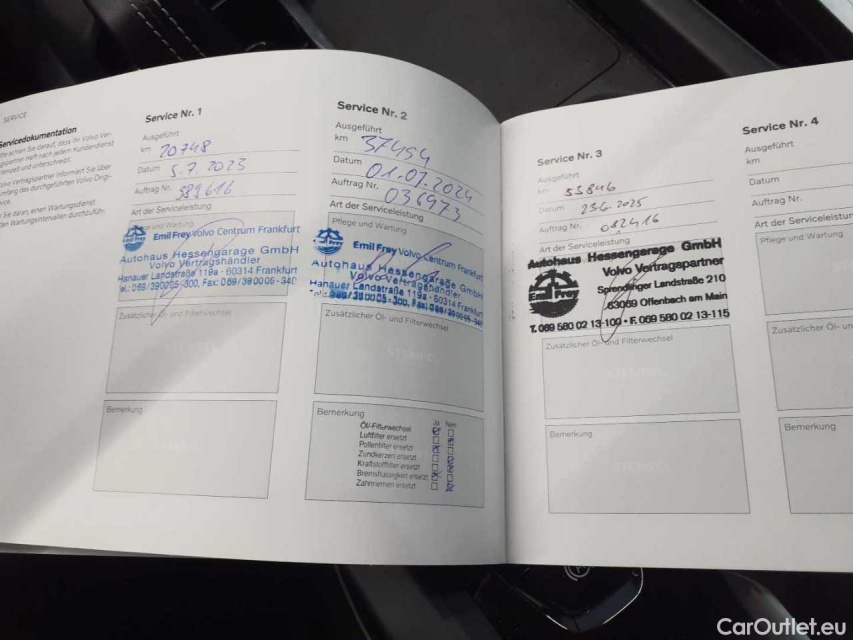 SERVICE
Servicedokumentation
Service Nr. 1
Ausgeführt
km 20748
Datum 5.7.2023
Auftrag Nr. 989616
Art der Serviceleistung
Emil Frey Volvo Centrum Frankfurt
Autohaus Hessengarage GmbH
Volvo Vertragshändler
Hanauer Landstraße 119a - 60314 Frankfurt
Tel.: 069/390005-300, Fax: 069/390005-340
Zusätzlicher Öl- und Filterwechsel
Bemerkung
Service Nr. 2
Ausgeführt
km 37454
Datum 01.07.2024
Auftrag Nr. 036973
Art der Serviceleistung
Pflege und Wartung
Emil Frey Volvo Centrum Frankfurt
Autohaus Hessengarage GmbH
Volvo Vertragshändler
Hanauer Landstraße 119a - 60314 Frankfurt
069/390005-300, Fax: 069/390005-340
Zusätzlicher Öl- und Filterwechsel
STEMPEL
Bemerkung
Ja Nein
Öl-/Filterwechsel
Luftfilter ersetzt
Pollenfilter ersetzt
Zündkerzen ersetzt
Kraftstofffilter ersetzt
Bremsflüssigkeit ersetzt
Zahnriemen ersetzt
Service Nr. 3
Ausgeführt
km 55846
Datum 23.6.2025
Auftrag Nr. 082416
Art der Serviceleistung
Autohaus Hessengarage GmbH
Volvo Vertragspartner
Emil Frey
Sprendlinger Landstraße 210
63069 Offenbach am Main
T. 069 580 02 13-100 • F. 069 580 02 13-115
Zusätzlicher Öl- und Filterwechsel
Bemerkung
Service Nr. 4
Ausgeführt
km
Datum
Auftrag Nr.
Art der Serviceleistung
Pflege und Wartung
Zusätzlicher Öl- un
Bemerkung
CarOutlet.eu